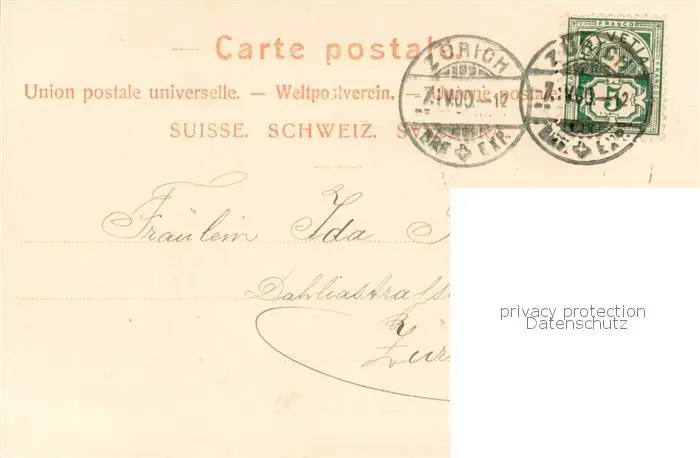 Carte postale
Union postale universelle. — Weltpostverein. — Unione postale
SUISSE. SCHWEIZ. SVIZZERA.
ZÜRICH
7.IV.00. - 12
BRF. EXP.
ZÜRICH
7.IV.00. - 12
BRF. EXP.
FRANCO
HELVETIA
5
Fräulein Ida
Dahliastrasse
Zür
privacy protection
Datenschutz